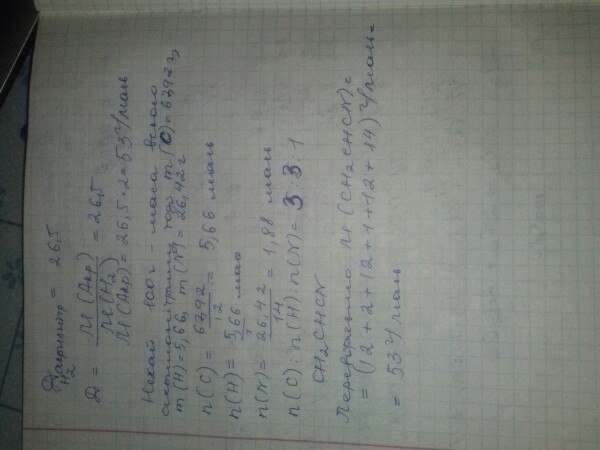 D акрилонітр H2 = 26,5
D = M(Акр) / M(H2) = 26,5
M(Акр) = 26,5·2 = 53 г/моль
Нехай 100г - маса всього
акрилонітрилу, тоді m(C) = 67,92г,
m(H) = 5,66, m(N) = 26,42г
n(C) = 67,92 / 12 = 5,66 моль
n(H) = 5,66 моль
n(N) = 26,42 / 14 = 1,88 моль
n(C) : n(H) : n(N) = 3 : 3 : 1
CH2CHCN
Перевіряємо M(CH2CHCN) =
= (12+2+12+1+12+14) г/моль =
= 53 г/моль